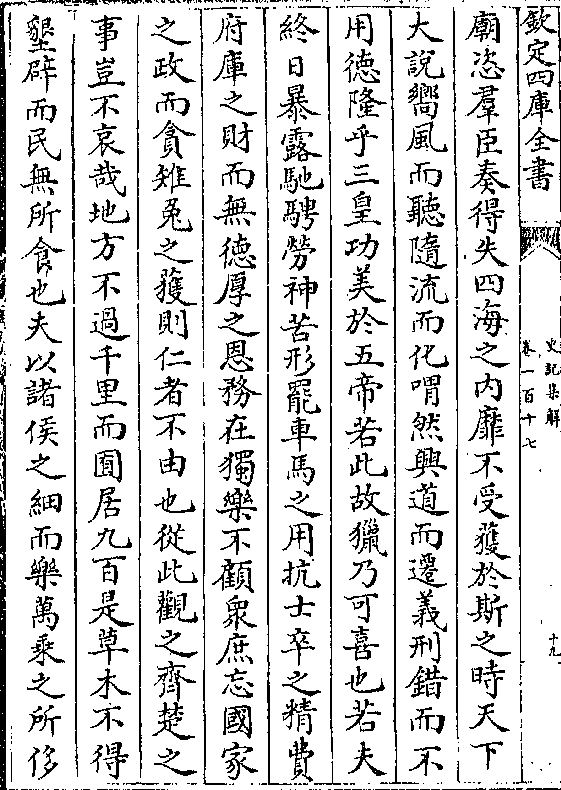 欽定四庫全書
史記集解
卷一百十七
十九
廟恣羣臣奏得失四海之內靡不受獲於斯之時天下
大說嚮風而聽隨流而化喟然興道而遷義刑錯而不
用徳隆乎三皇功美於五帝若此故獵乃可喜也若夫
終日暴露馳騁勞神苦形罷車馬之用抗士卒之精費
府庫之財而無徳厚之恩務在獨樂不顧衆庶忘國家
之政而貪雉兎之獲則仁者不由也從此觀之齊楚之
事豈不哀哉地方不過千里而囿居九百是草木不得
墾辟而民無所食也夫以諸侯之細而樂萬乘之所侈